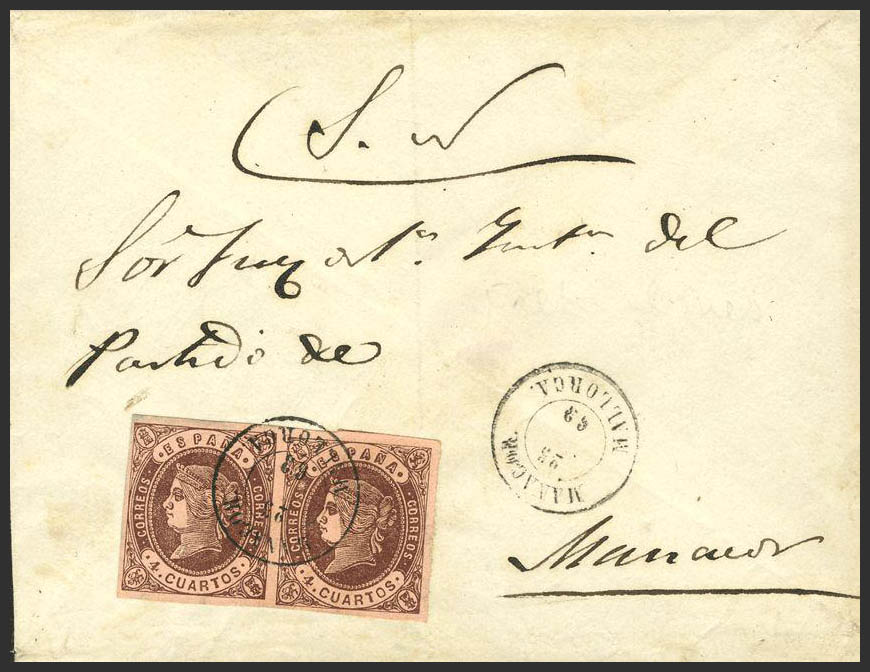 S. N
Sor Juez de 1ª. Insta. del
Partido de
Manacor
ESPAÑA
CORREOS CORREOS
4. CUARTOS.
ESPAÑA
CORREOS CORREOS
4. CUARTOS.
MANACOR.
23
63
MALLORCA.